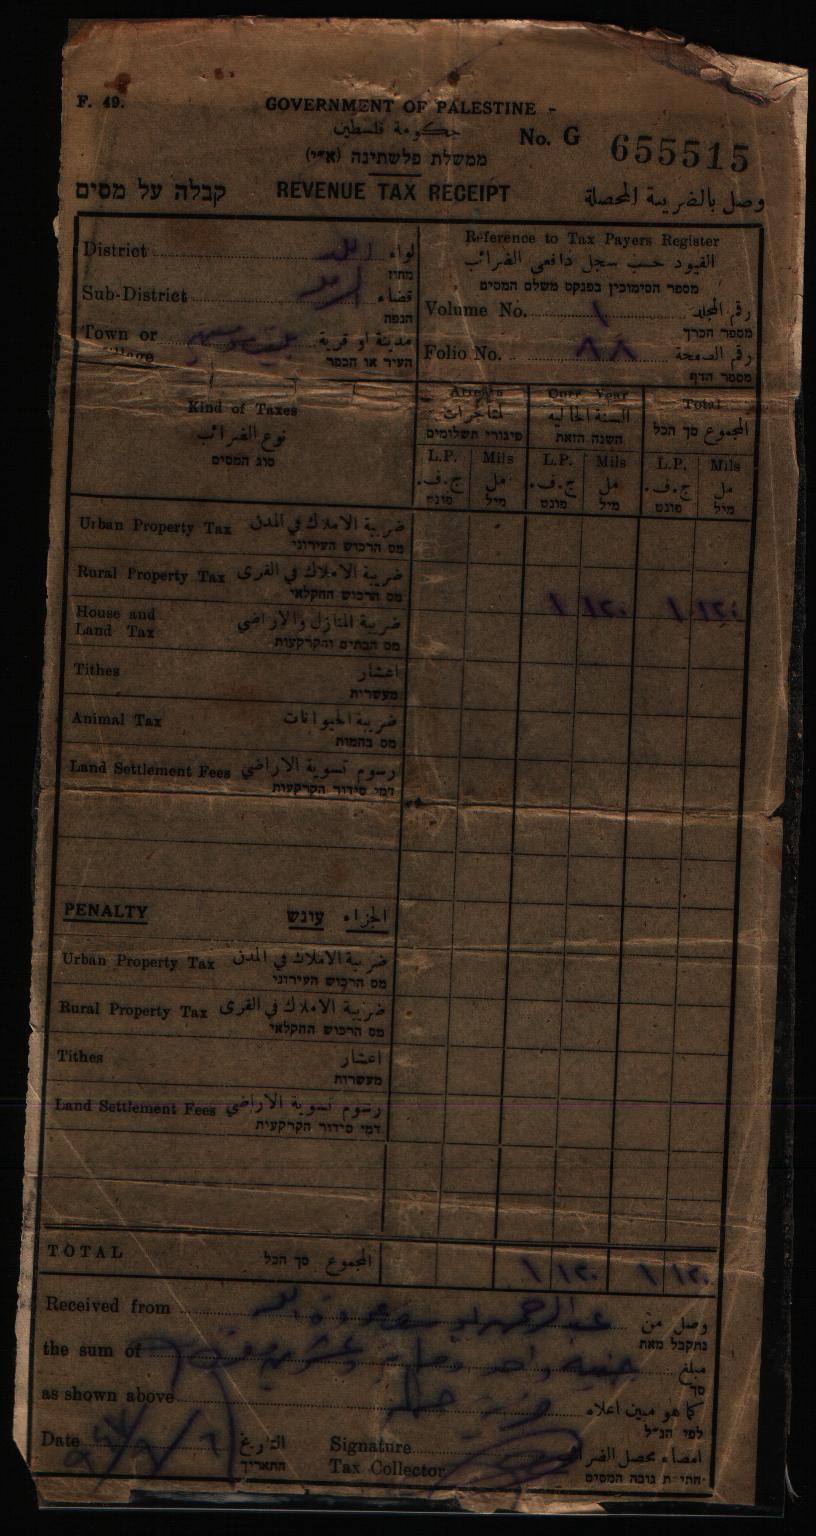 F. 49.
GOVERNMENT OF PALESTINE
حكومة فلسطين
No. G 655515
ממשלת פלשתינה (א״י)
קבלה על מסים REVENUE TAX RECEIPT وصل بالضريبة المحصلة
District لواء
מחוז
Sub-District قضاء
הנפה
Town or مدينة او قرية
העיר או הכפר
Reference to Tax Payers Register
القيود حسب سجل دافعي الضرائب
מספר הסימוכין בפנקס משלם המסים
Volume No. ١ رقم المجلد
מספר הכרך
Folio No. ٨٨ رقم الصفحة
מספר הדף
Kind of Taxes
نوع الضرائب
סוג המסים
Arrears Curr. Year Total
متأخرات السنة الحالية المجموع סך הכל
פיגורי תשלומים השנה הזאת
L.P. Mils L.P. Mils L.P. Mils
ج.ف. مل ج.ف. مل ج.ف. مل
פונט מיל פונט מיל פונט מיל
Urban Property Tax ضريبة الاملاك في المدن
מס הרכוש העירוני
Rural Property Tax ضريبة الاملاك في القرى
מס הרכוש החקלאי
١ ١٢٠ ١ ١٢٠
House and Land Tax ضريبة المنازل والاراضي
מס הבתים והקרקעות
Tithes اعشار
מעשרות
Animal Tax ضريبة الحيوانات
מס בהמות
Land Settlement Fees رسوم تسوية الاراضي
דמי סידור הקרקעות
PENALTY עונש الجزاء
Urban Property Tax ضريبة الاملاك في المدن
מס הרכוש העירוני
Rural Property Tax ضريبة الاملاك في القرى
מס הרכוש החקלאי
Tithes اعشار
מעשרות
Land Settlement Fees رسوم تسوية الاراضي
דמי סידור הקרקעית
TOTAL סך הכל المجموع ١ ١٢٠ ١ ١٢٠
Received from وصل من
נתקבל מאת
the sum of جنيه واحد ومايه وعشرين مبلغ
סך
as shown above كما هو مبين اعلاه
לפי הנ״ל
Date التاريخ
התאריך
Signature امضاء محصل الضرائب
Tax Collector חתימת גובה המסים